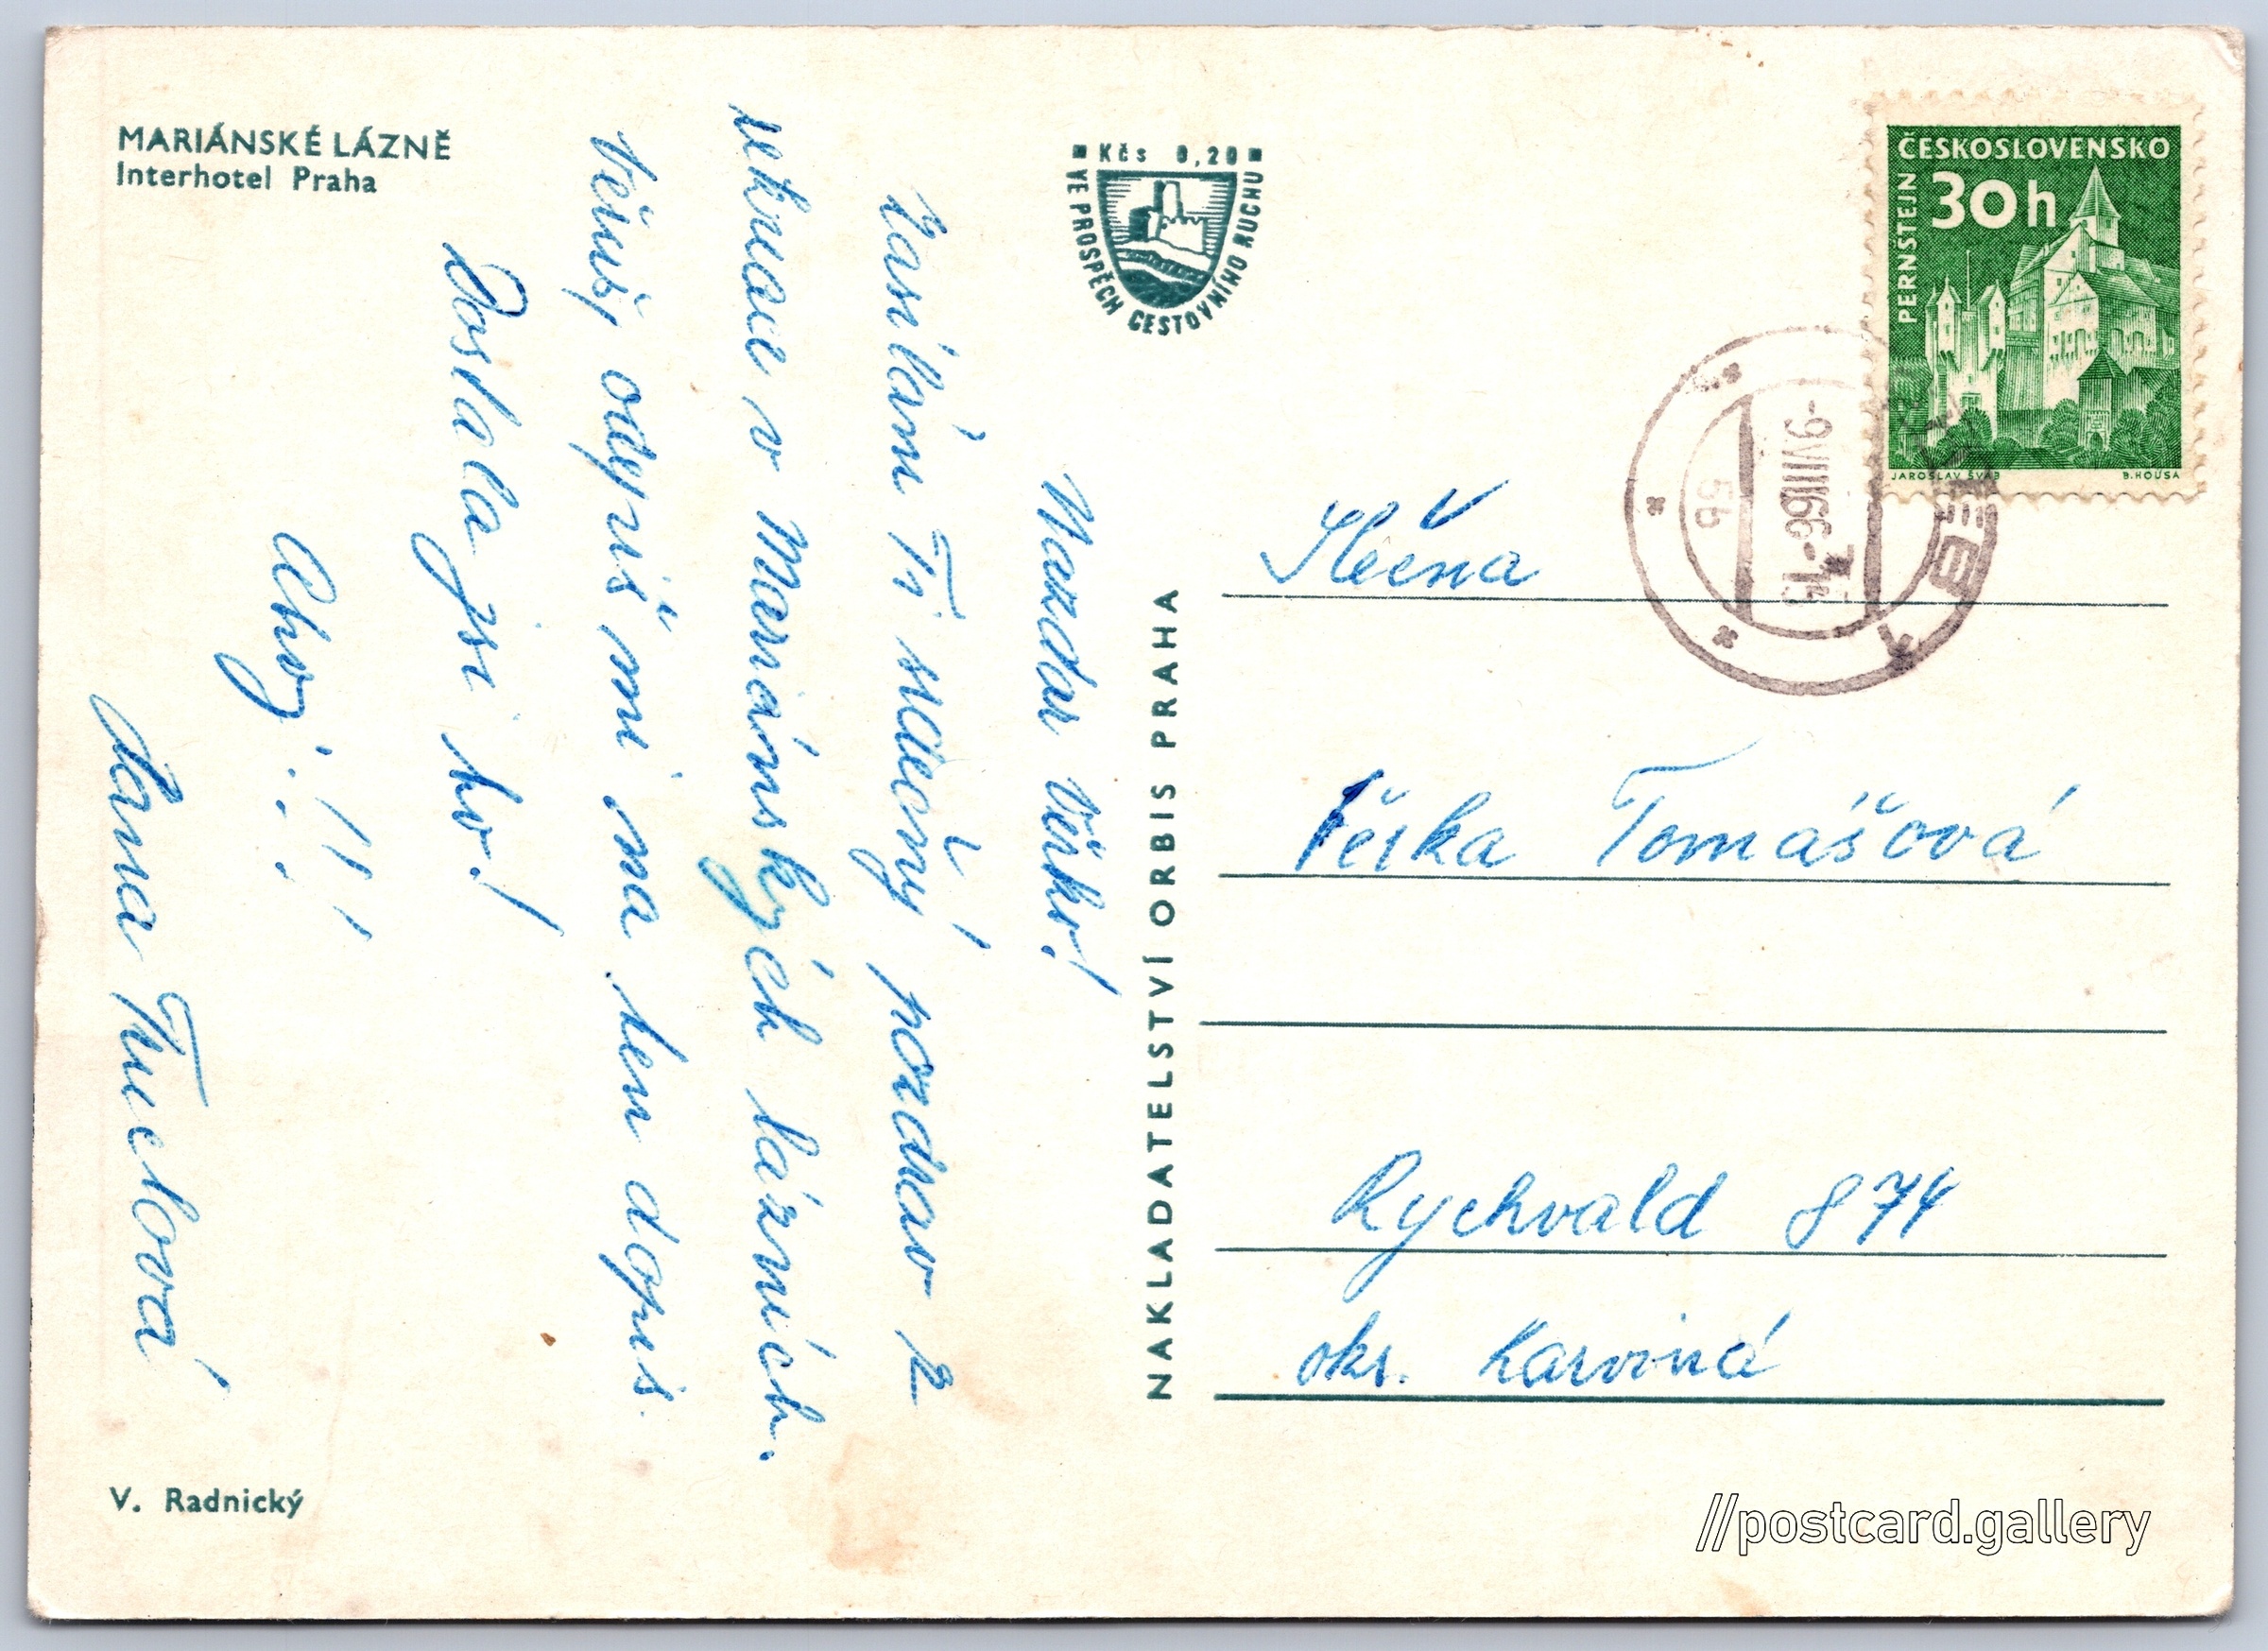 MARIÁNSKÉ LÁZNĚ
Interhotel Praha
Nazdar Věrko!
Zasílám Ti srdečný pozdrav z
rekreace v Mariánských lázních.
Věruš, odepiš mi na ten dopis.
Dostala jsi ho!
Ahoj!!!
Jana
V. Radnický
Kčs 0,20
VE PROSPĚCH CESTOVNÍHO RUCHU
NAKLADATELSTVÍ ORBIS PRAHA
ČESKOSLOVENSKO
30h
PERNŠTEJN
JAROSLAV ŠVÁB
B. HOUSA
-9.VIII.66-15
5b
CHEB 1
Slečna
Věrka Tomášová
Rychvald 874
okr. Karviná
//postcard.gallery